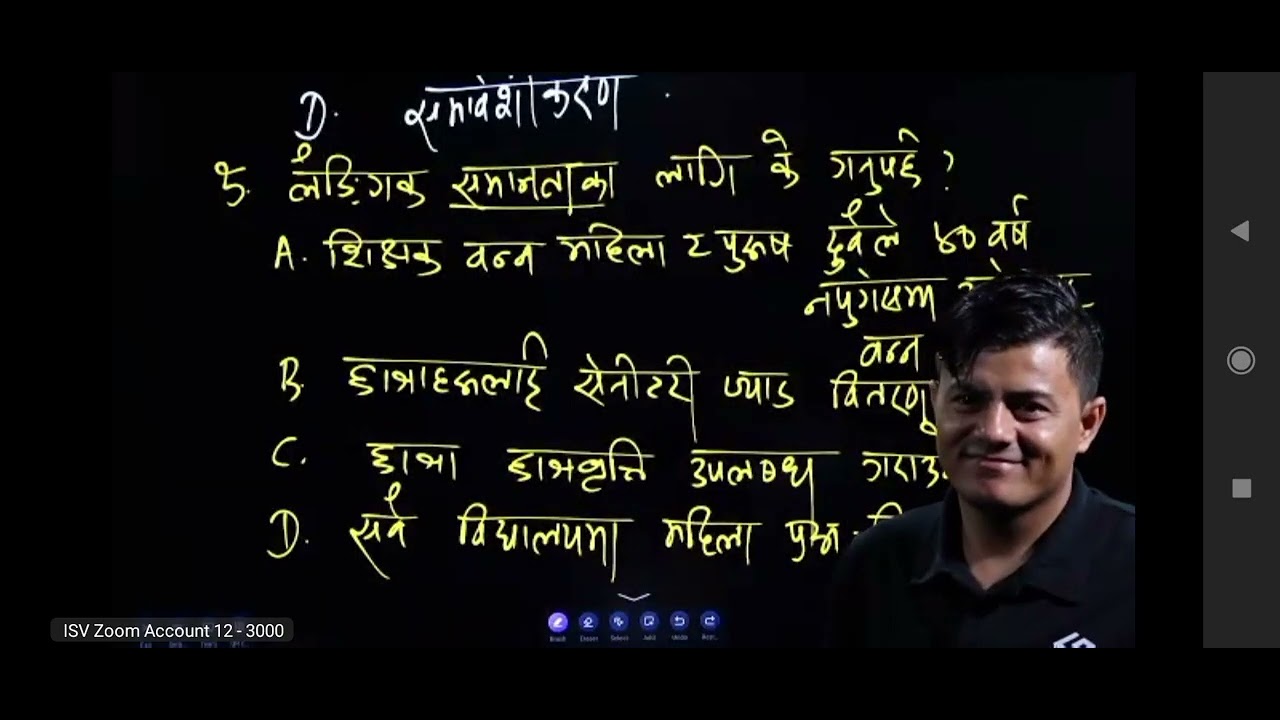 D. समावेशीकरण .
३. लैङ्गिक समानताका लागि के गर्नुपर्छ ?
A. शिक्षक बन्न महिला र पुरूष दुवैले ४० वर्ष
नपुगेसम्म
बन्न
B. छात्राहरूलाई सेनीटरी प्याड वितरण
C. छात्रा छात्रवृत्ति उपलब्ध
D. सबै विद्यालयमा महिला
ISV Zoom Account 12 - 3000
Eraser
Select
Add
Undo